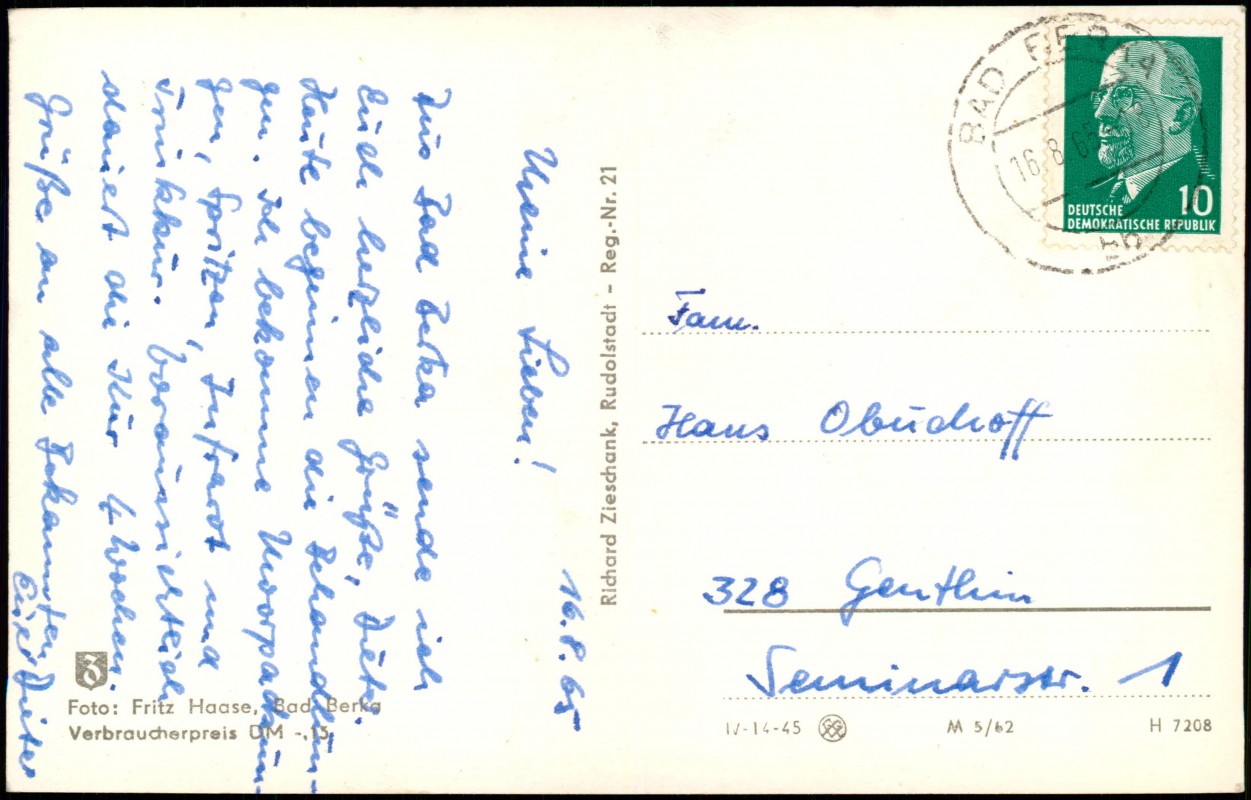 16.8.65
Meine Lieben!
Aus Bad Berka sende ich
Euch herzliche Grüße,
Heute beginnen die Behandlun-
gen. Ich bekomme Moorpackun-
gen, Spritzen, Infrarot und
Trinkkur. Voraussichtlich
dauert die Kur 4 Wochen.
Grüße an alle Bekannten
Euer Dieter
Foto: Fritz Haase, Bad Berka
Verbraucherpreis DM -,15
Richard Zieschank, Rudolstadt – Reg.-Nr. 21
BAD BERKA
16.8.65
10
DEUTSCHE
DEMOKRATISCHE REPUBLIK
Fam.
Hans Obuchoff
328 Genthin
Seminarstr. 1
IV-14-45 M 5/62 H 7208